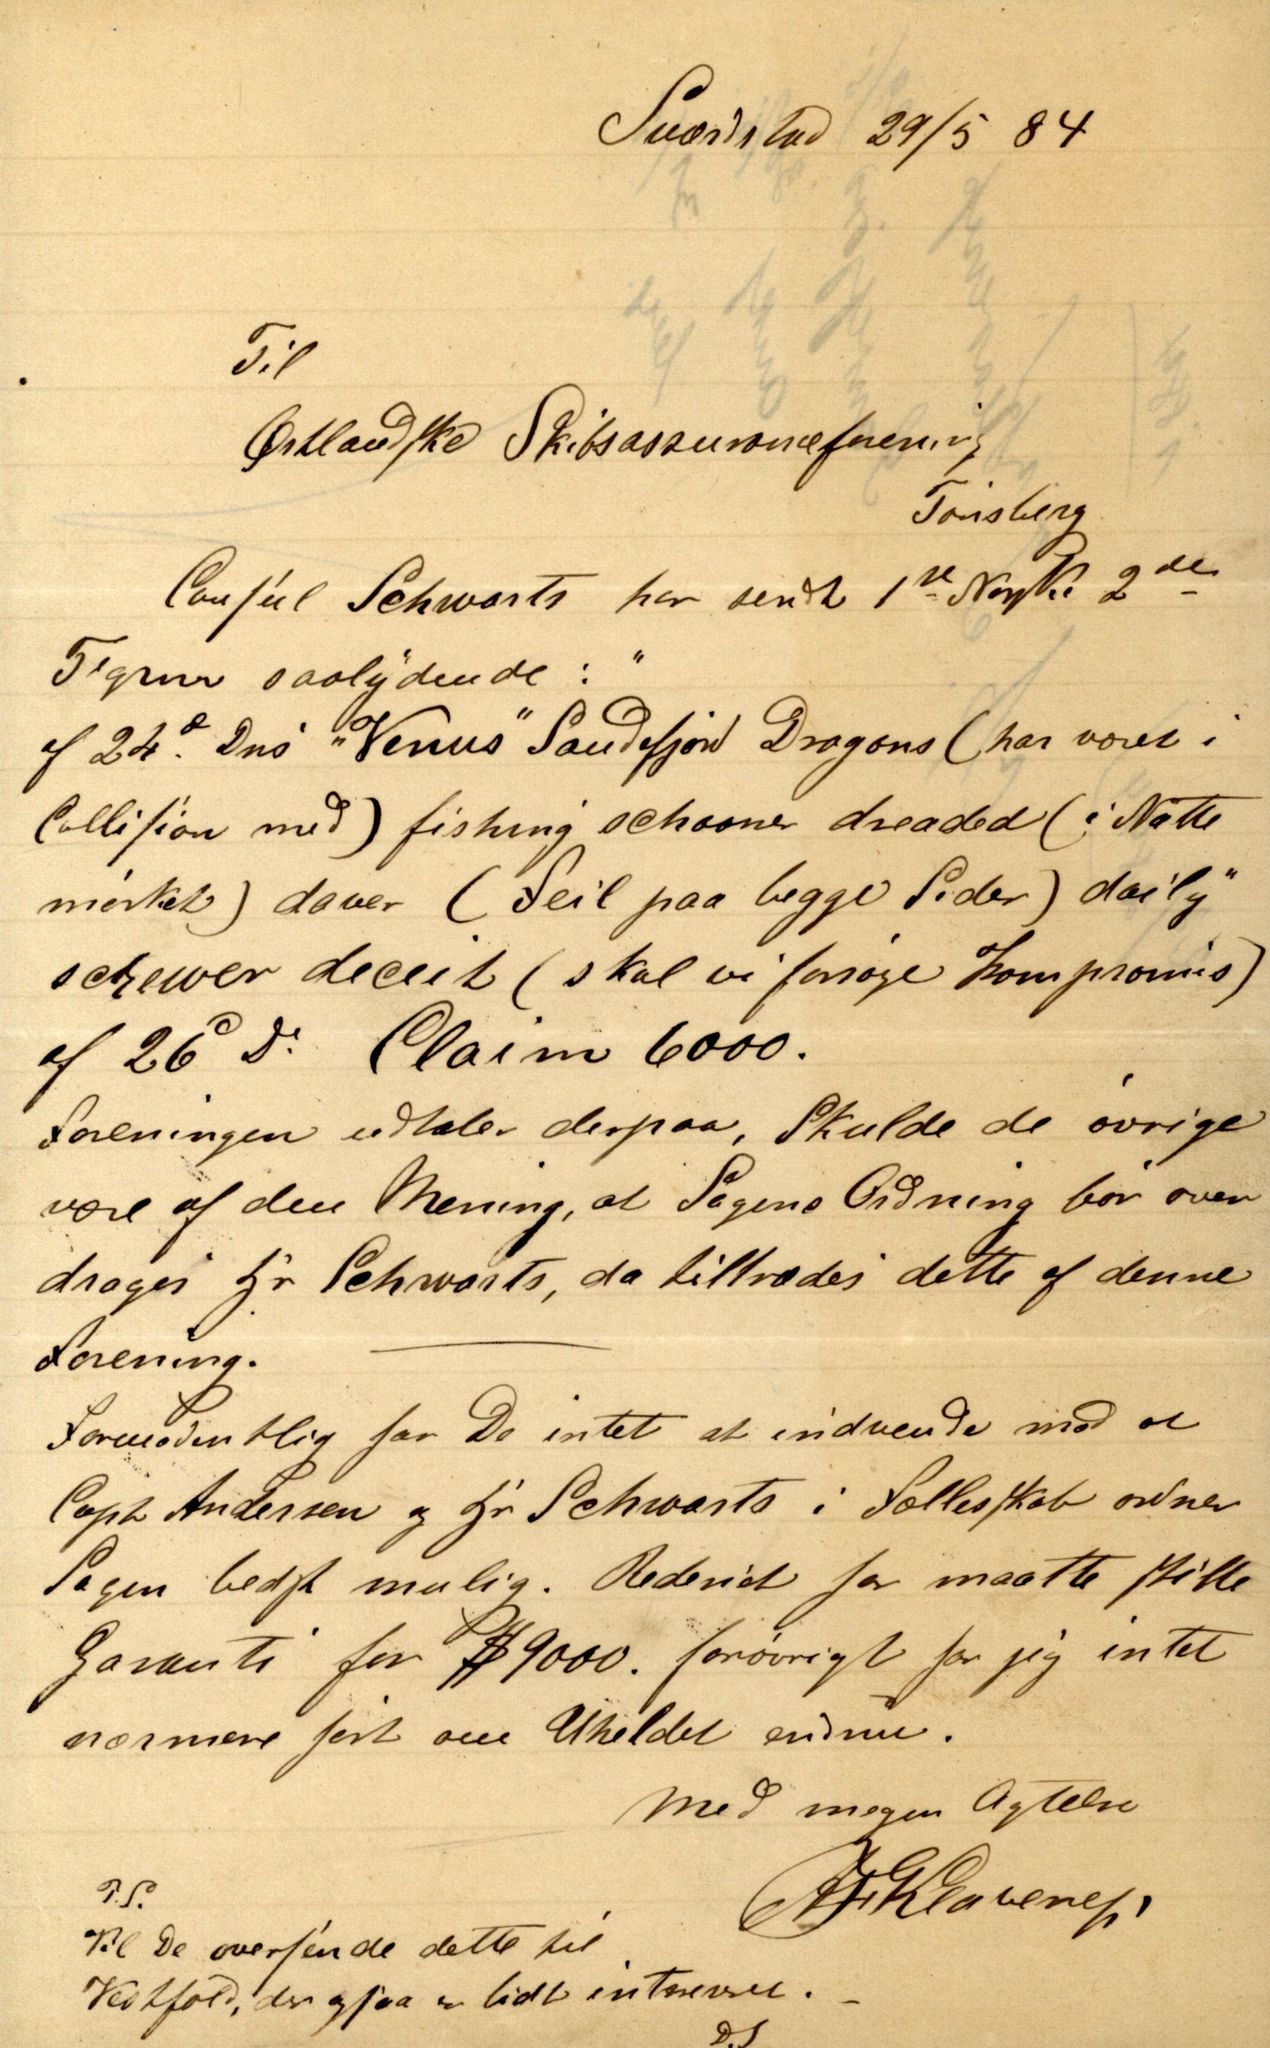 Sværdstad 29/5 84
Til
Østlandske Skibsassuranceforening
Tönsberg
Consúl Schwarts har sendt 1ste Norske 2de
Tegrmr saalÿdende : "
af 24d. Dns "Venus" Sandefjord Dragons (har været i
Collision med) fishing schooner dreaded (i Natte
mörket) daver (Feil paa begge Sider) daily"
schewer deceit (skal vi forsöge Kompromis)
af 26d Ds. Claim 6000.
Foreningen udtaler derpaa, Skulde de övrige
være af den Mening, at Sagens Ordning bör over
drages Hr Schwarts, da tiltrædes dette af denne
Forening.
Formodentlig har De intet at indvende mod at
Capt Andersen og Hr Schwarts i Fællesskab ordner
Sagen bedst mulig. Rederiet har maatte stille
Garanti for $9000. foröovrigt har jeg intet
nærmere hört om Uheldet endnu.
Med megen Agtelse
Klavenes
P.S.
Vil De oversende dette til
Vestfold, der ogsaa er lidt interesseret.
D.S